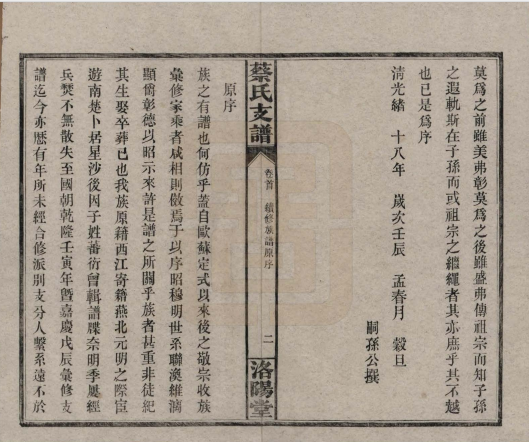 莫爲之前雖美弗彰莫爲之後雖盛弗傳祖宗而知子孫
之遐軌斯在子孫而或祖宗之繼繩者其亦庶乎其不越
也已是爲序
淸光緖十八年歲次壬辰孟春月穀旦
嗣孫公撰
蔡氏支譜
卷首 續修族譜原序 二
洛陽堂
原序
族之有譜也何仿乎蓋自歐蘇定式以來後之敬宗收族
彙修家乘者咸相則傚焉于以序昭穆明世系聯渙維漓
顯爵彰德以昭示來許是譜之所關乎族者甚重非徒紀
其生娶卒葬已也我族原籍西江寄籍燕北元明之際宦
遊南楚卜居星沙後因子姓蕃衍曾輯譜牒奈明季屢經
兵燹不無散失至國朝乾隆壬寅年曁嘉慶戊辰彙修支
譜迄今亦歷有年所未經合修派別支分人繫系遠不於